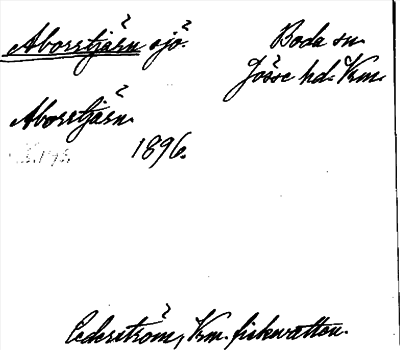 Aborrtjärn sjö. Boda sn.
Jösse hd. Vrm.
Aborrtjärn.
1896.
Cederström, Vrm. fiskevatten.